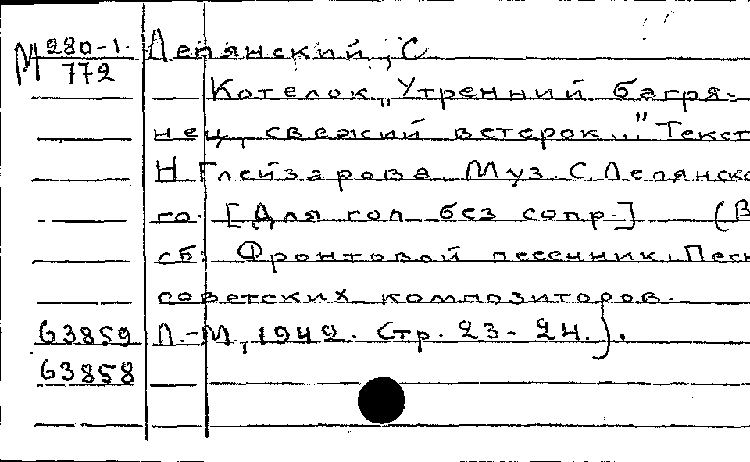 М 280-1. Лепянский, С
772
Котелок „Утренний багря-
нец, свежий ветерок..." Текст
Н Глейзарова Муз. С. Лепянско
го. [Для гол без сопр.] (В
сб: Фронтовой песенник. Песн
советских композиторов.
63859 Л.-М, 1942. Стр. 23-24.).
63858